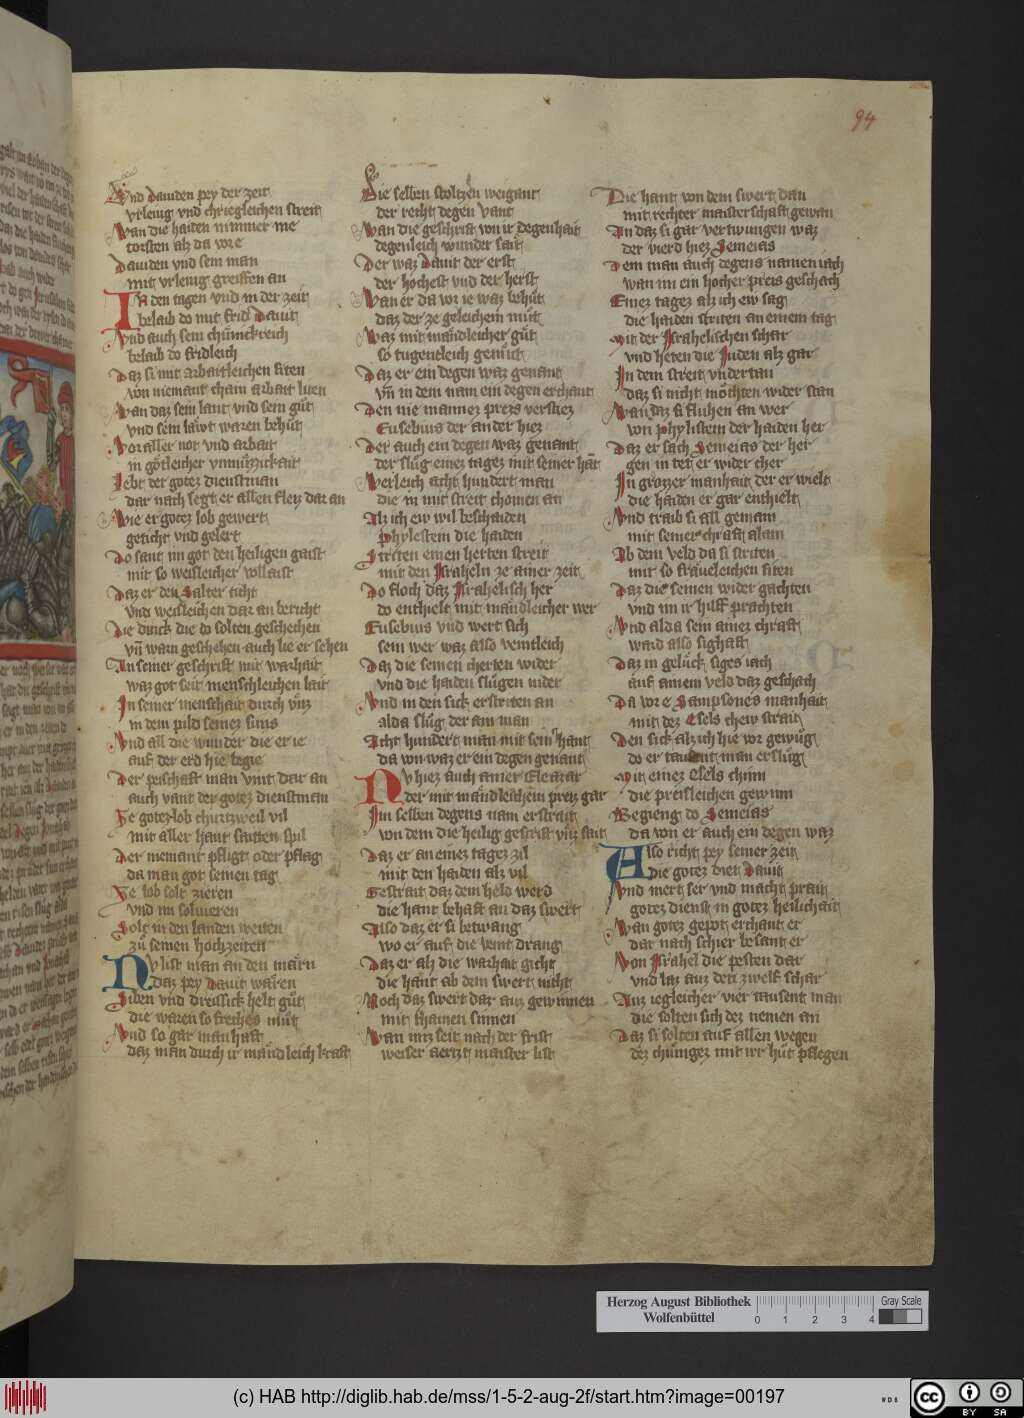 94
Und dauiden pey der zeit
vrleug vnd chriegleichen streit
Wan die haiden nimmer me
torsten alz da vore
Dauiden vnd sein man
mit vrleug greiffen an
In den tagen vnd in der zeit
belaib do mit frid Dauit
Vnd auch sein chünickreich
belaib do fridleich
Daz si mit arbaitleichen siten
von niemant cham arbait liten
Wan daz sein lant vnd sein gůt
vnd sein lawt waren behůt
Vor aller not vnd arbait
in götleicher
Lebt der gotez dienstman
dar nach legt er allen fleiz dar an
Wie er gotez lob gewert
geticht vnd gelert
Do sant im got den heiligen gaist
mit so weisleicher vollaist
Daz er den Salter ticht
vnd weisleichen dar an bericht
Die dinck die do solten geschechen
vn̄ warn geschehen auch lie er sehen
An seiner geschrift mit warhait
waz got seit menschleichen lait
In seiner menschait durch vnz
in dem pild seinez suns
Vnd all die wunder die er ie
auf der erd hie begie
Der peischaft man vint dar an
auch vant der gotez dienstman
Ze gotez lob churtzweil vil
mit aller hant saitten spil
Der niemant pfligt oder pflag
da man got seinen tag
Ze lob solt zieren
vnd im solnieren
Solt in den landen weiten
zů seinen hochzeiten
Nv list man an den märn
daz pey Dauit waren
Siben vnd dreissick helt gůt
die waren so freches můt
Vnd so gar manhaft
daz man durch ir mändleich kraft
Die selben stoltzen weigant
der recht degen vant
Wan die geschrift von ir degenhait
degenleich wunder sait
Der waz Dauit der erst
der höchest vnd der herst
Wan er da vor ie waz behůt
daz der ze geleichem můt
Waz mit mändleicher gůt
so tugentleich gemůt
Daz er ein degen waz genant
vn̄ in dem nam ein degen erchant
Den nie mannez preis
Eusebius der ander hiez
Der auch ein degen waz genant
der slůg einez tagez mit seiner hāt
Werleich acht hundert man
die in mit streit chomen an
Alz ich ew wil beschaiden
phylestein die haiden
Striten einen herten streit
mit den Israheln ze ainer zeit
Do floch daz Israhelisch her
do enthielt mit mändleicher wer
Eusebius vnd wert sich
sein wer waz also veintleich
Daz die seinen cherten wider
vnd die haiden slůgen nider
Vnd in den sick erstriten an
alda slůg der ain man
Acht hundert man mit seinr hant
da von waz er ein degen genant
Nv hiez auch ainer Eleazar
der mit mändleichem preiz gar
Im selben degens nam erstrait
von dem die heilig geschrift vnz sait
Daz er an einez tagez zil
mit den haiden alz vil
Gestrait daz dem held werd
die hant behaft an daz swert
Also daz er si betwang
wo er auf die veint drang
Daz er alz die warhait gicht
die hant ab dem swert nicht
Noch daz swert dar auz gewinnen
mit chainen sinnen
Wan intz seit nach der frist
weiser aertzt maister list
Die hant von dem swert dan
mit rechter maisterschaft gewan
An daz si gar vertwungen waz
der vierd hiez Semeias
Dem man auch degens namen iach
wan im ein hocher preis geschach
Einez tagez alz ich ew sag
die haiden striten an einem tag
Mit der Israhelischen schar
vnd heten die Juden alz gar
In dem streit vndertan
daz si nicht möchten wider stan
Wan daz si fluhen an wer
von phylistein der haiden her
Daz er sach Semeias der her
gen in tet er wider cher
In grozzer manhait der er wielt
die haiden er gar enthielt
Vnd traib si all gemain
mit seiner chraft alain
Ab dem veld da si striten
mit so fräueleichen siten
Daz die seinen wider gachten
vnd im ir hilff prachten
Vnd alda sein ainez chraft
ward also sighaft
Daz in gelück siges iach
auf ainem veld daz geschach
Da vore Sampsones manhait
mit dez Esels chew strait
Den sick alz ich hie vor gewůg
do er tausent man erslůg
Mit einez Esels chinn
die preisleichen gewinn
Begieng do Semeias
da von er auch ein degen waz
Also richt pey seiner zeit
die gotez diet Dauit
Vnd mert ser vnd macht prait
gotez dienst in gotez heilichait
Wan gotez gepot erchant er
dar nach schier besant er
Von Israhel die pesten dar
vnd laz auz den zwelf schar
Auz iegleicher vier tausent man
die solten sich dez nemen an
Daz si solten auf allen wegen
dez chünigez mit irr hůt pflegen
Herzog August Bibliothek
Wolfenbüttel
0 1 2 3 4
Gray Scale
(c) HAB http://diglib.hab.de/mss/1-5-2-aug-2f/start.htm?image=00197
WDB
cc BY SA